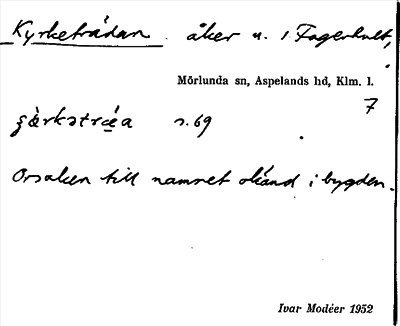 Kyrketrädan. åker u. 1 Fagerhult,
Mörlunda sn, Aspelands hd, Klm. l.
7
s. 69
Orsaken till namnet okänd i bygden.
Ivar Modéer 1952